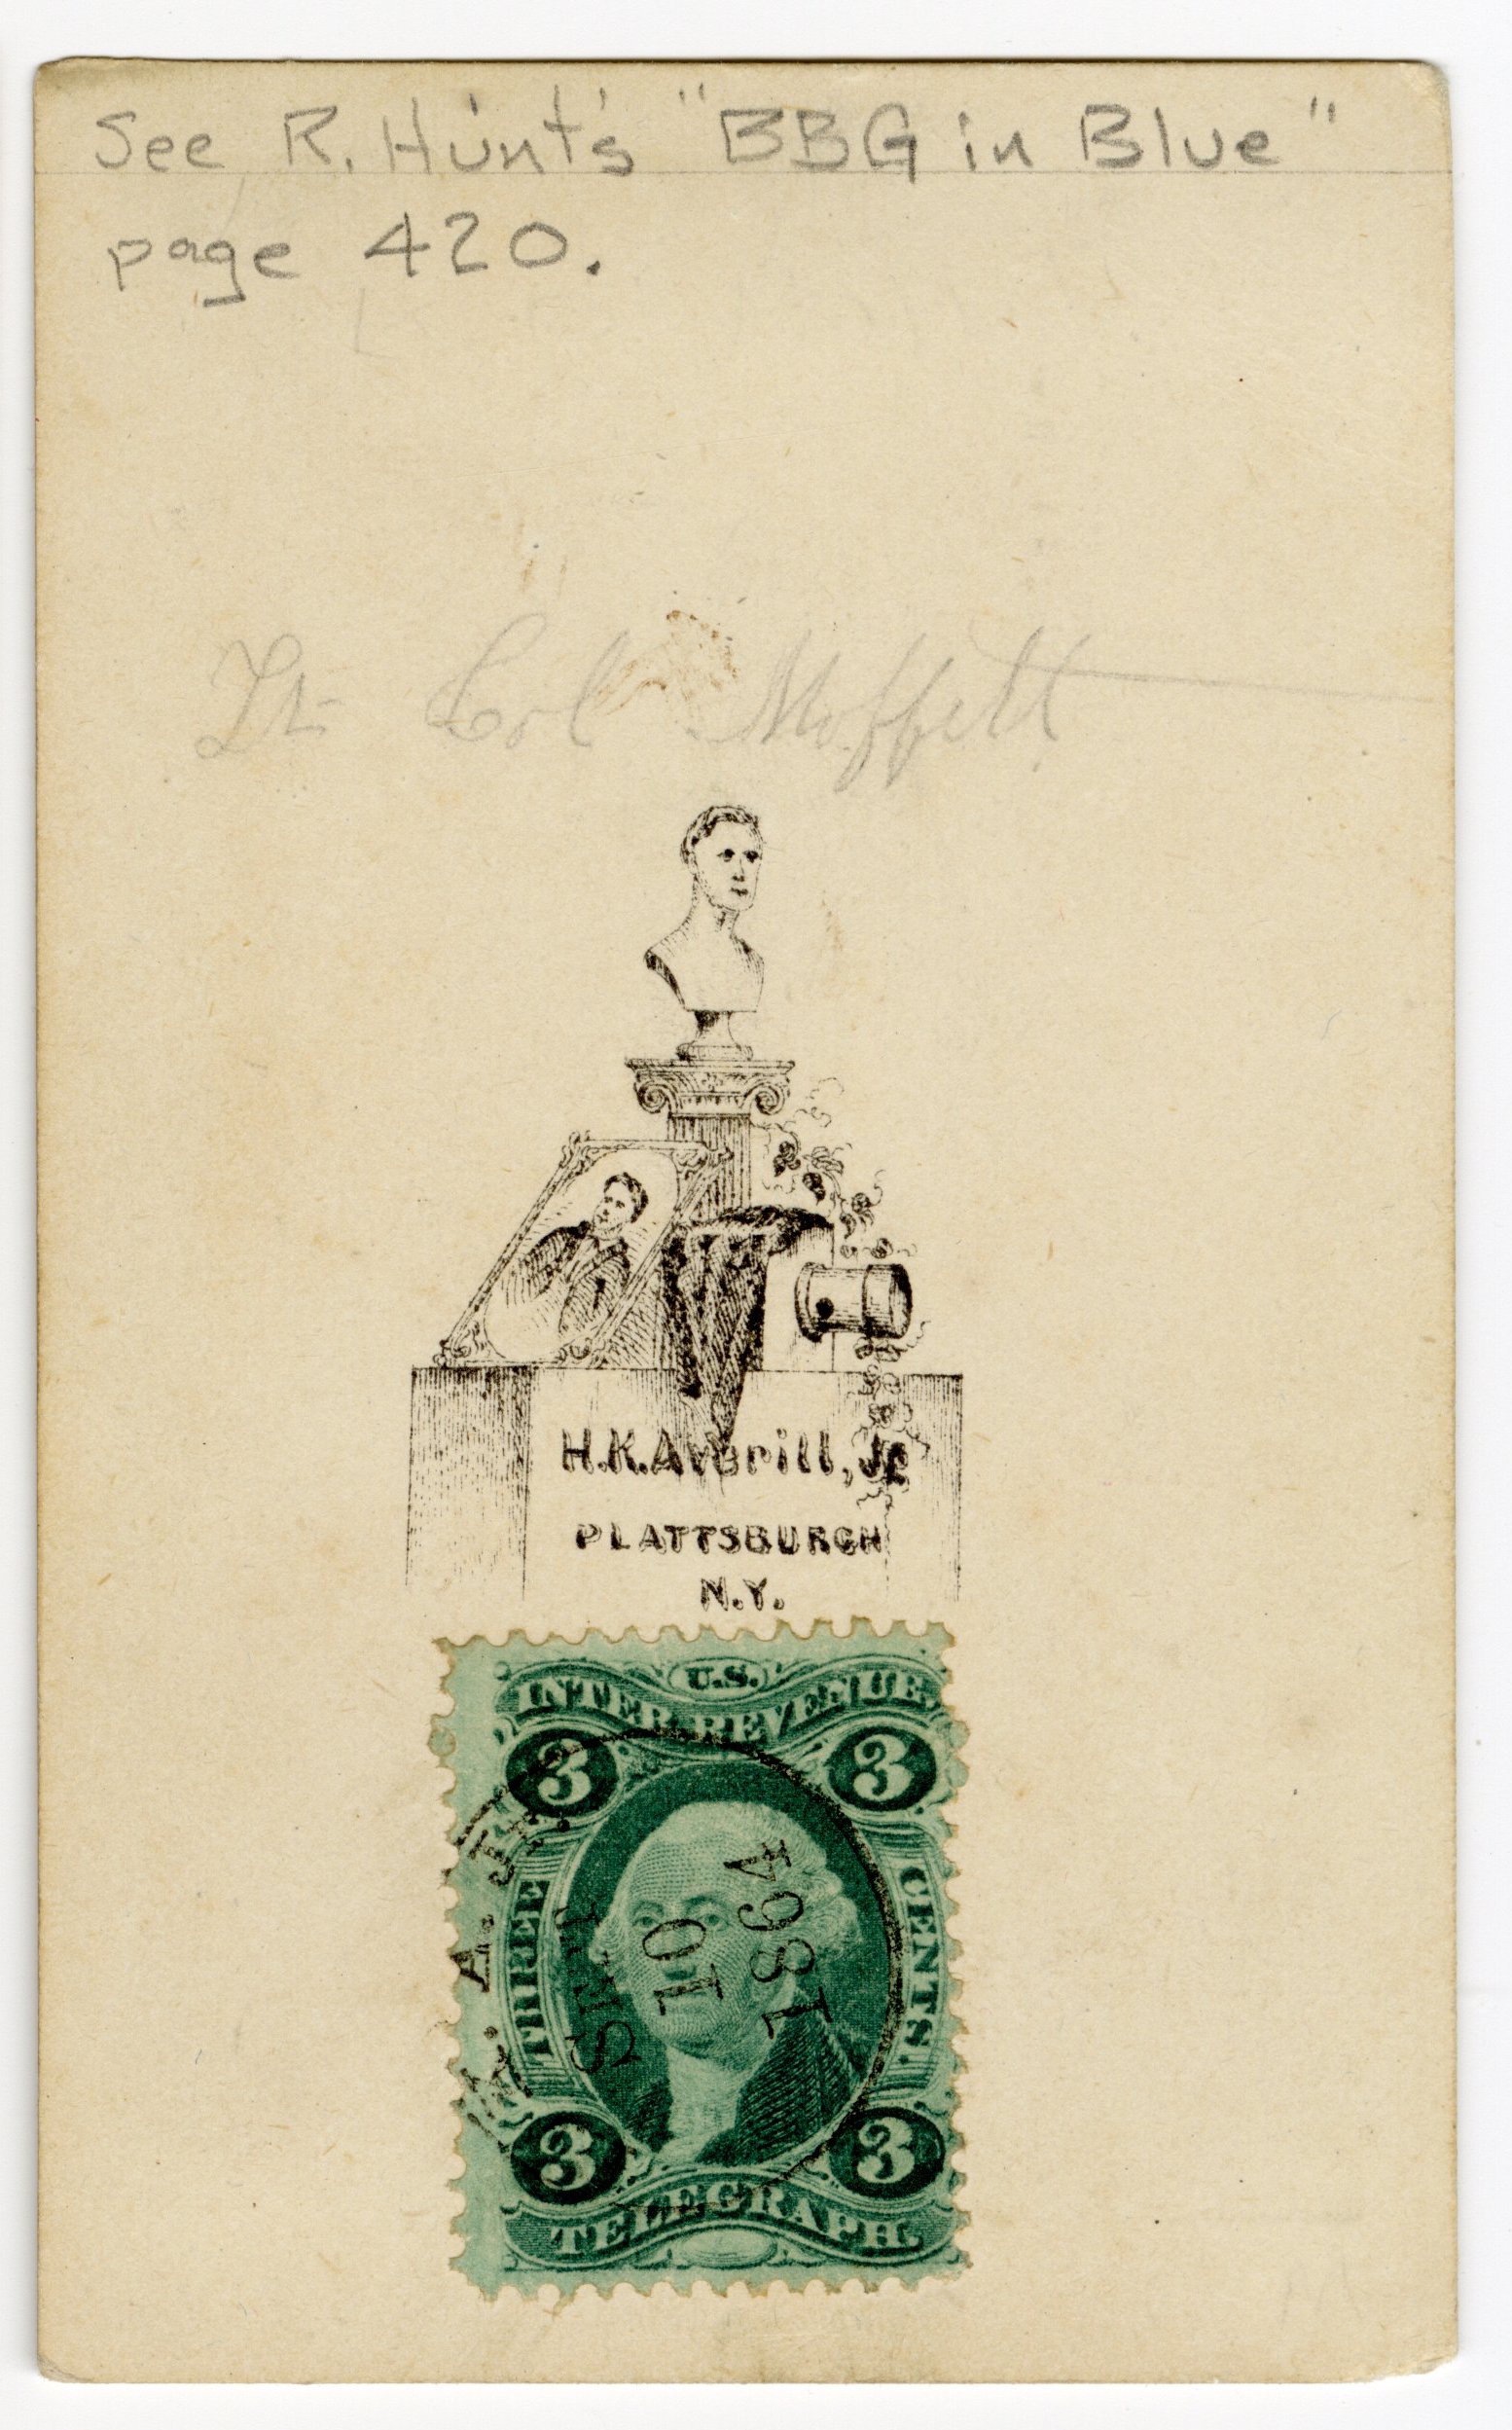 See R. Hunt's "BBG in Blue"
page 420.
Lt Col Moffett
H.K. Averill, Jr
PLATTSBURGH
N.Y.
U.S.
INTER. REVENUE.
3 3
THREE CENTS.
SEPT
10
1864
3 3
TELEGRAPH.